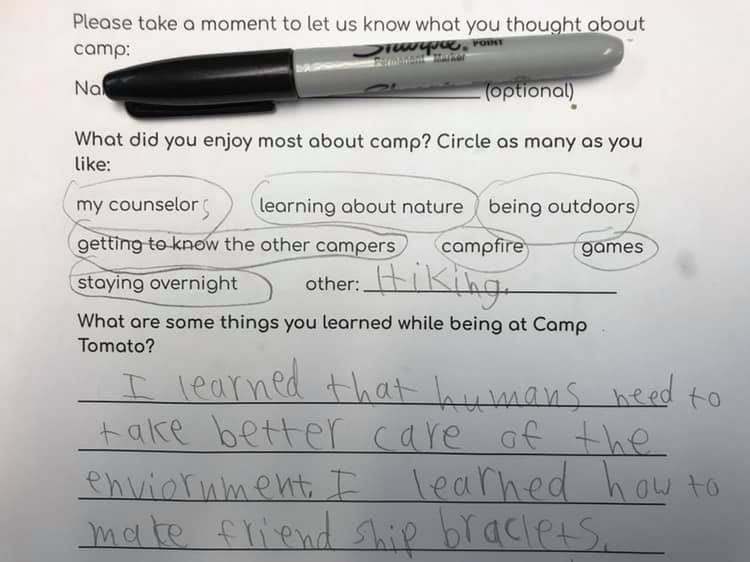 Please take a moment to let us know what you thought about
camp:
Sharpie. POINT
Permanent Marker
(optional)
What did you enjoy most about camp? Circle as many as you
like:
my counselors learning about nature being outdoors
getting to know the other campers campfire games
staying overnight other: Hiking.
What are some things you learned while being at Camp
Tomato?
I learned that humans need to
take better care of the
enviornment. I learned how to
make friend ship braclets.